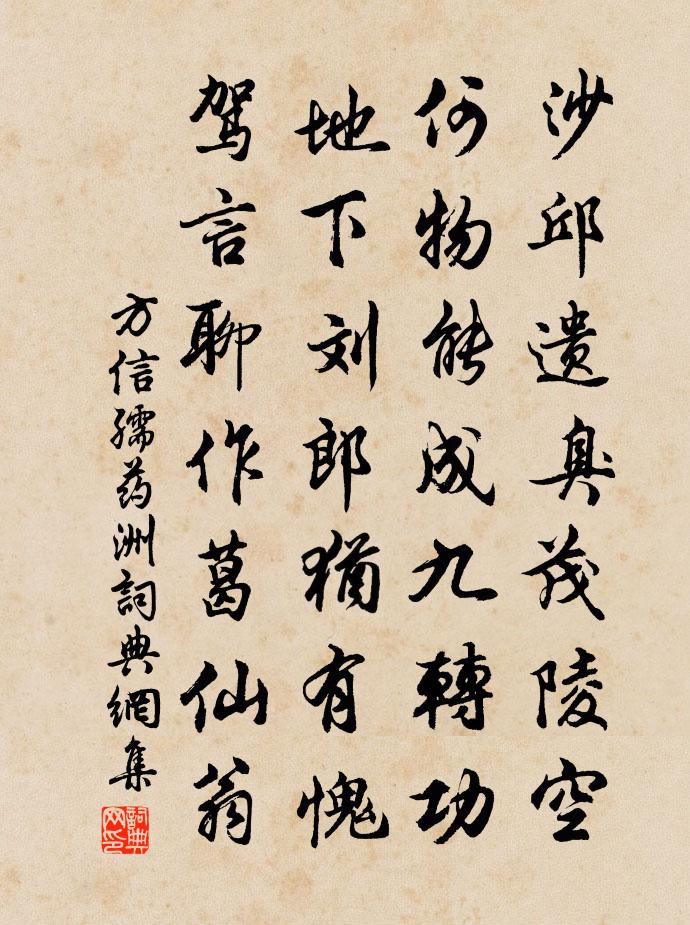 沙邱遗臭茂陵空
何物能成九轉功
地下刘郎猶有愧
駕言聊作葛仙翁
方信孺药洲詞典網集
詞典网印